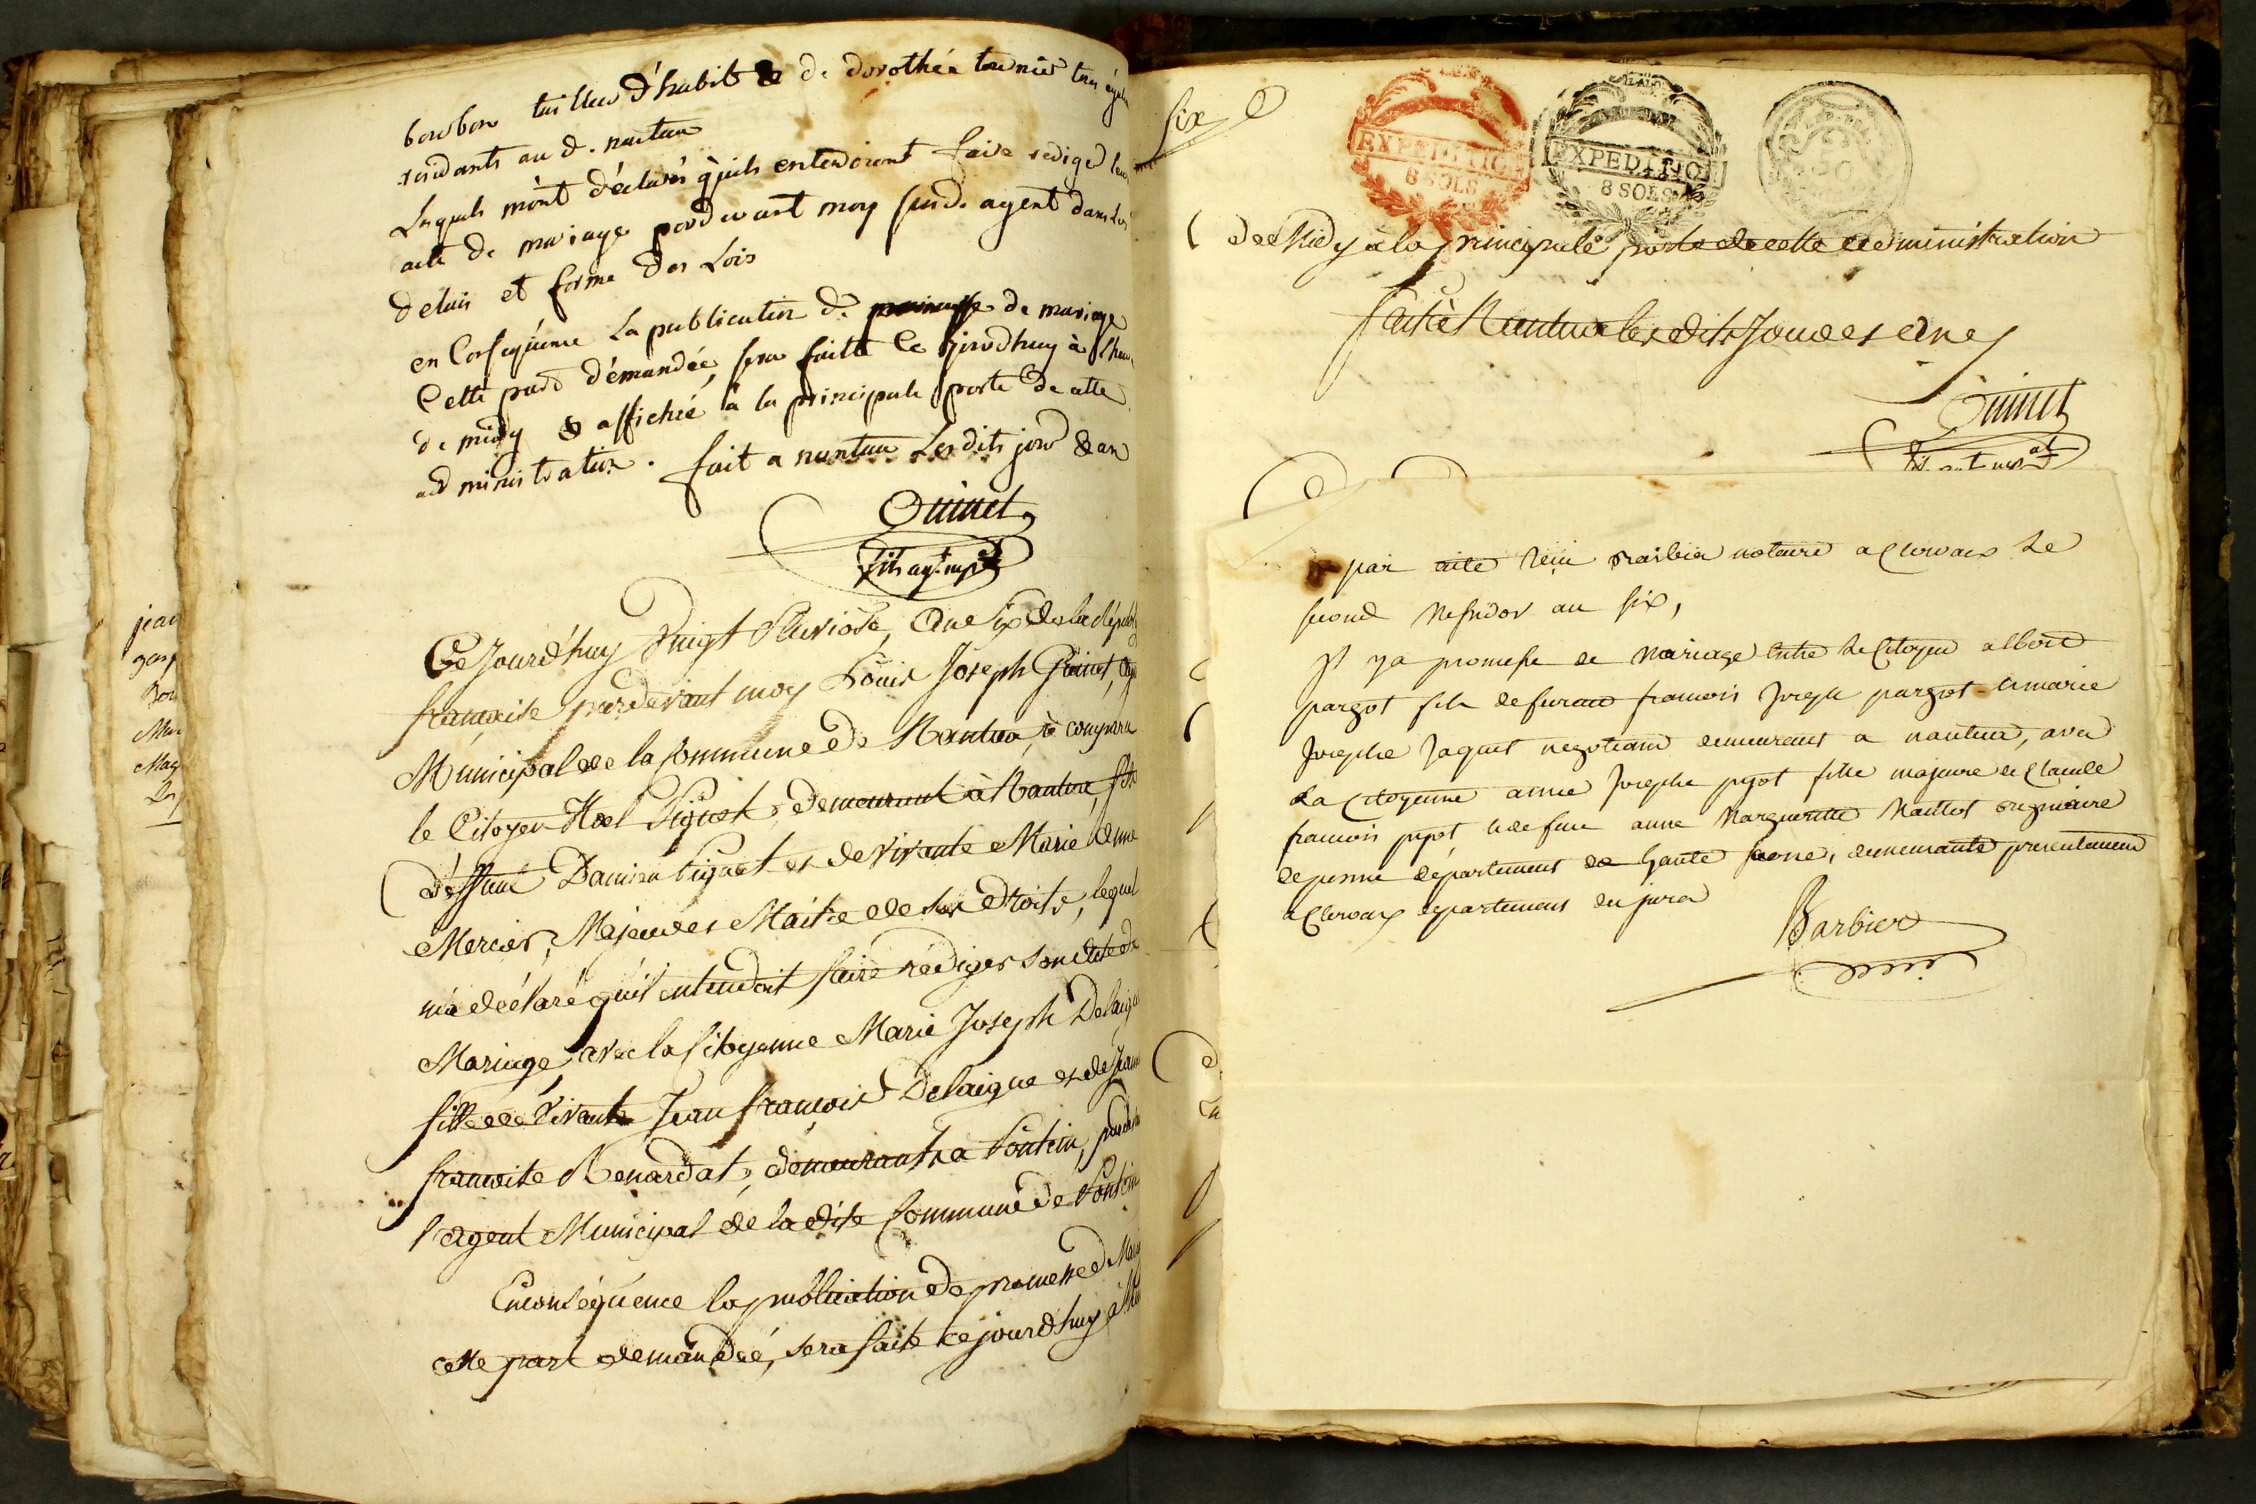 bourbon tailleur d'habit & de dorothée tournier tous
résidants au d. nantua
Lesquels m'ont déclarés qu'ils entendoient faire rédiger leur
acte de mariage pardevant moy susd. agent dans les
délais et forme des Lois
en Conséquence La publication de promesse de mariage
Cette part démandée, sera faitte Ce jourdhuy à
de midy & affichée à la principale porte de cette
administration. fait a nantua Lesdits jour & an
Quinet
fils agt. mpal
Ce Jourd'huy Vingt Pluviôse, an Six de la République
françaite pardevant moy Louis Joseph Quinet, agent
Municipal de la Commune de Nantua, à comparu
le Citoyen Noel Piquet, demeurant à Nantua, fils
déffunt Damien Piquet et de vivante Marie
Mercier, Majeur et Maître de ses droits, lequel
m'a déclaré qu'il entendoit faire rédiger son acte de
Mariage avec la Citoyenne Marie Joseph Delaigue
fille de vivants Jean françois Delaigue et de
françoite Renardat, demeurants à Pontein, pardevant
l'agent Municipal de la dite Commune de Pontein
Enconséquence la publication de promesse de
cette part demandée, sera faite ce jourd'huy à
jean
Six
EXPEDITION
8 SOLS
EXPEDITIO
8 SOLS
50
de Midy à la principale porte de cette administration
fait à Nantua les dits Jour et an
Quinet
par acte reçu Barbier notaire a Clervaux le
second Mesidor an six,
Il y a promesse de mariage entre le Citoyen albert
pargot fils de furent francois Joseph pargot & marie
Josephe Jaquet negotiant demeurant a nantua, avec
La Citoyenne anne Josephe pyot fille majeure de Claude
francois pyot, & de fue anne Marguerite originaire
de département de haute saone, demeurante presentement
a Clervaux département du jura
Barbier